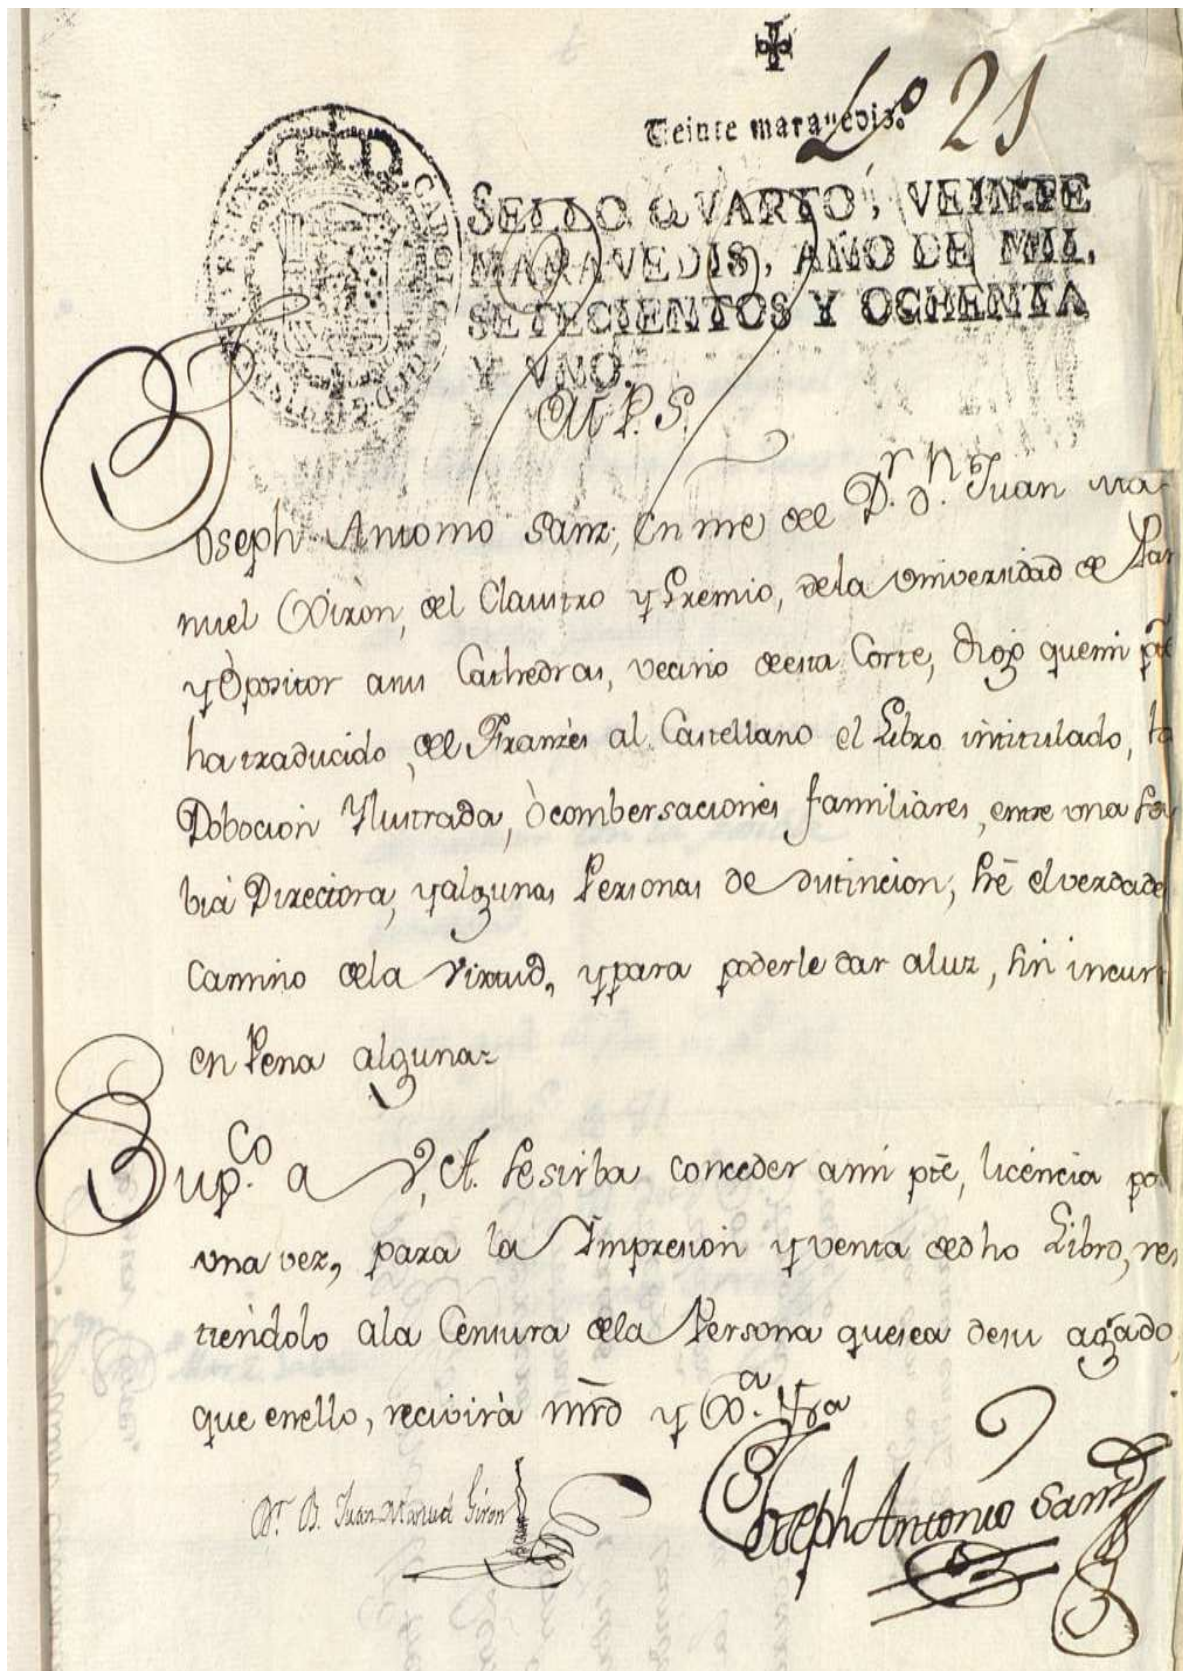 Veinte maravedis.
Lº 21
SELLO QVARTO, VEINTE
MARAVEDIS, AÑO DE MIL
SETECIENTOS Y OCHENTA
Y VNO.
M.P.S.
Joseph Antonio Sanz, en nre del D.r d.n Juan Ma-
nuel Girón, del Claustro y Gremio, dela Vniversidad de
y Opositor asus Cathedras, vecino deesta Corte, Digo quemi pte
ha traducido, del Franzès al Castellano el Libro intitulado, la
Debocion Ylustrada, ò combersaciones familiares, entre vna Sa
bia Directora, y algunas Personas de distincion, sre el verdade
Camino dela Virtud, y para poderle dar a luz, sin incurr
en Pena alguna=
Sup.co a V,A. se sirba conceder ami pte, licencia po
vna vez, para la Impresion y venta dedho Libro, re
tiendolo ala Censura dela Persona quesea desu agrado,
que enello, recivirà mrd y G.a Jura
Dr. D. Juan Manuel Giron
Joseph Antonio Sanz